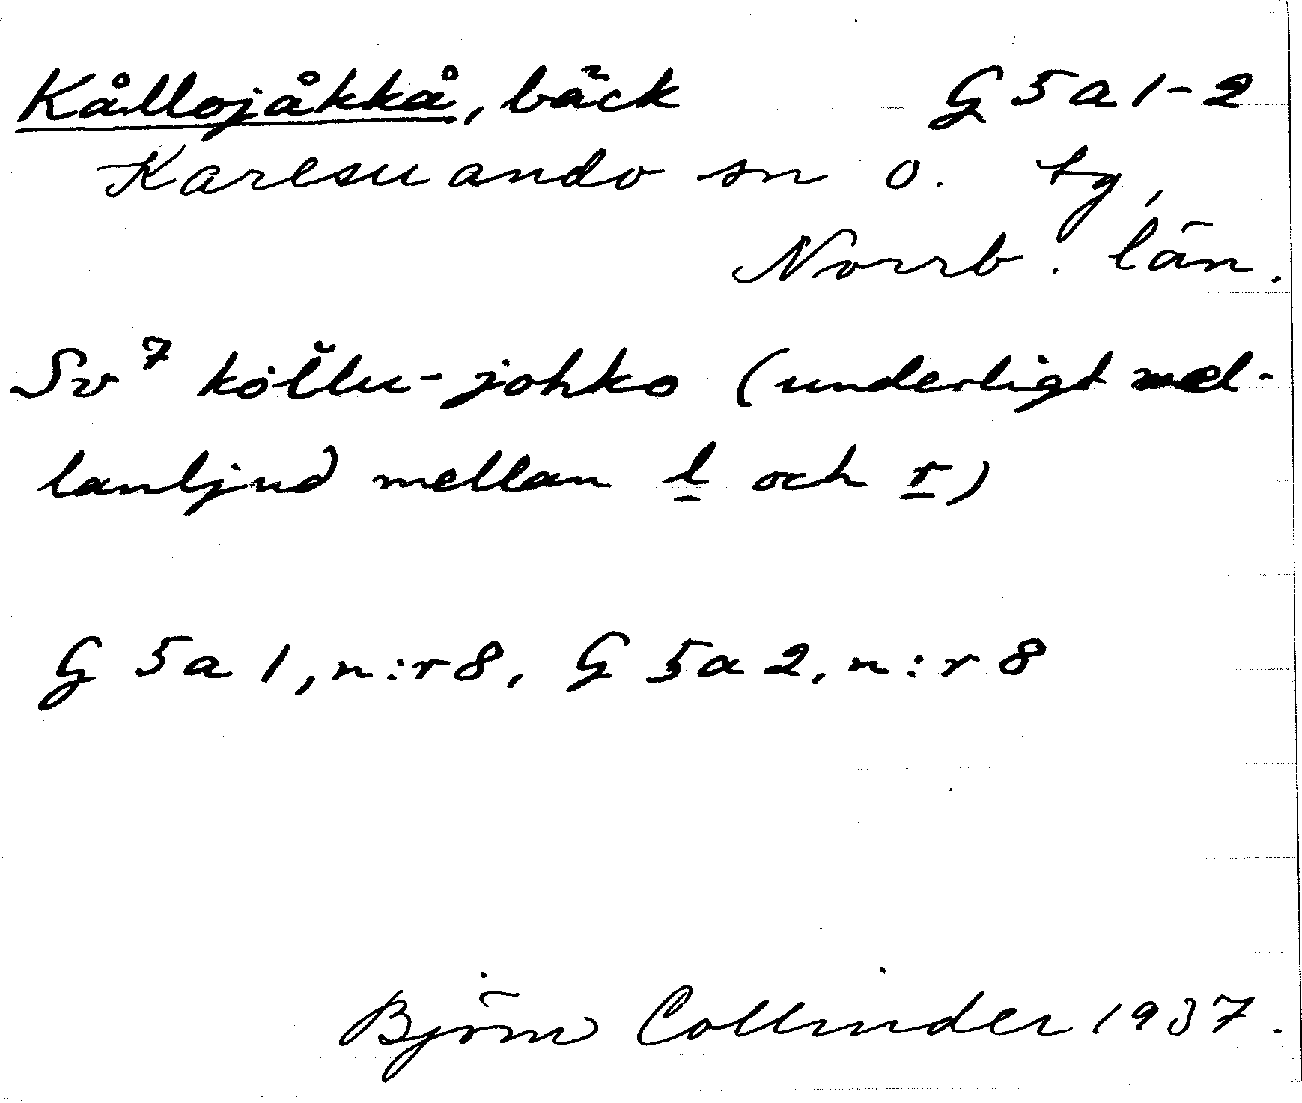 Kållojåkkå, bäck G5a1-2
Karesuando sn o. tg,
Norrb. län.
Sv⁷ kòl̆lu-johko (underligt mel-
lanljud mellan l och r)
G 5a 1, n:r 8, G 5a 2, n:r 8
Björn Collinder 1937.